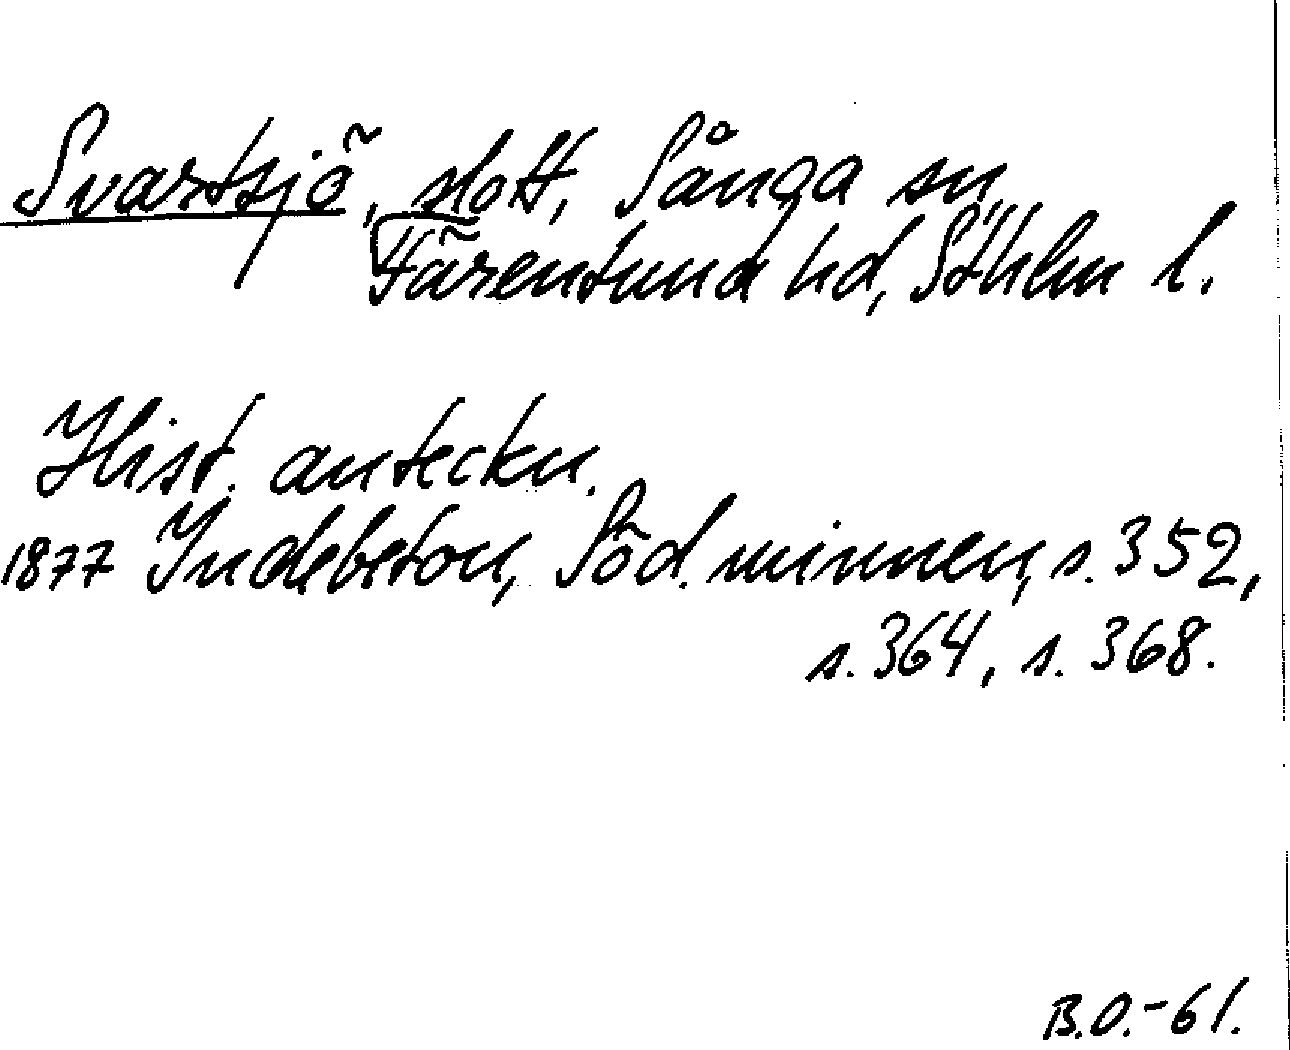 Svartsjö, slott, Sånga sn,
Färentuna hd, Sthlm l.
Hist. anteckn.
1877 Indebetou, Söd. minnen, s. 352,
s. 364, s. 368.
B.O.-61.